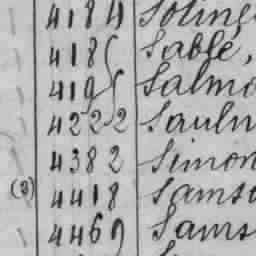 4184 Soling
4185 Sable,
4195 Salmo
4222 Sauln
4382 Simon
(3) 4418 Samso
4469 Sams